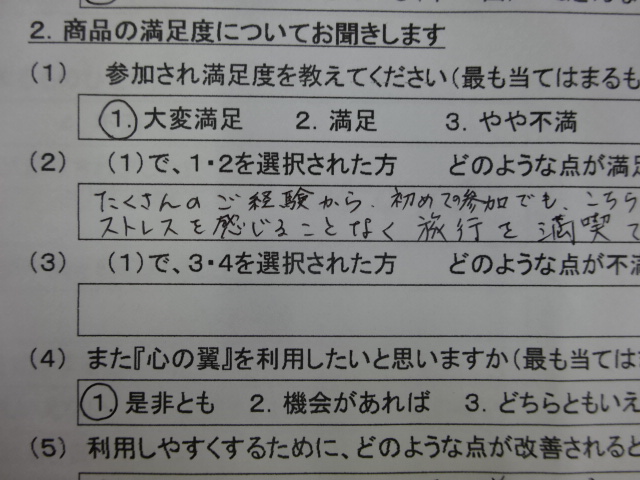 2. 商品の満足度についてお聞きします
(1) 参加され満足度を教えてください(最も当てはまるも
1. 大変満足 2. 満足 3. やや不満
(2) (1)で、1・2を選択された方 どのような点が満足
たくさんのご経験から、初めての参加でも、こちら
ストレスを感じることなく旅行を満喫で
(3) (1)で、3・4を選択された方 どのような点が不満
(4) また『心の翼』を利用したいと思いますか(最も当ては
1. 是非とも 2. 機会があれば 3. どちらともいえ
(5) 利用しやすくするために、どのような点が改善されると